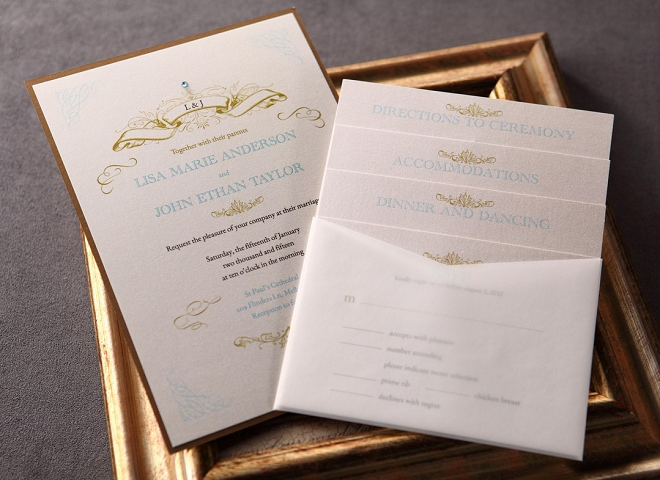 L & J
Together with their parents
LISA MARIE ANDERSON
and
JOHN ETHAN TAYLOR
Request the pleasure of your company at their marriage
Saturday, the fifteenth of January
two thousand and fifteen
at ten o'clock in the morning
St Paul's Cathedral
Flinders Ln,
Reception to
DIRECTIONS TO CEREMONY
ACCOMMODATIONS
DINNER AND DANCING
m
accepts with pleasure
number attending
please indicate
prime rib chicken breast
declines with regret